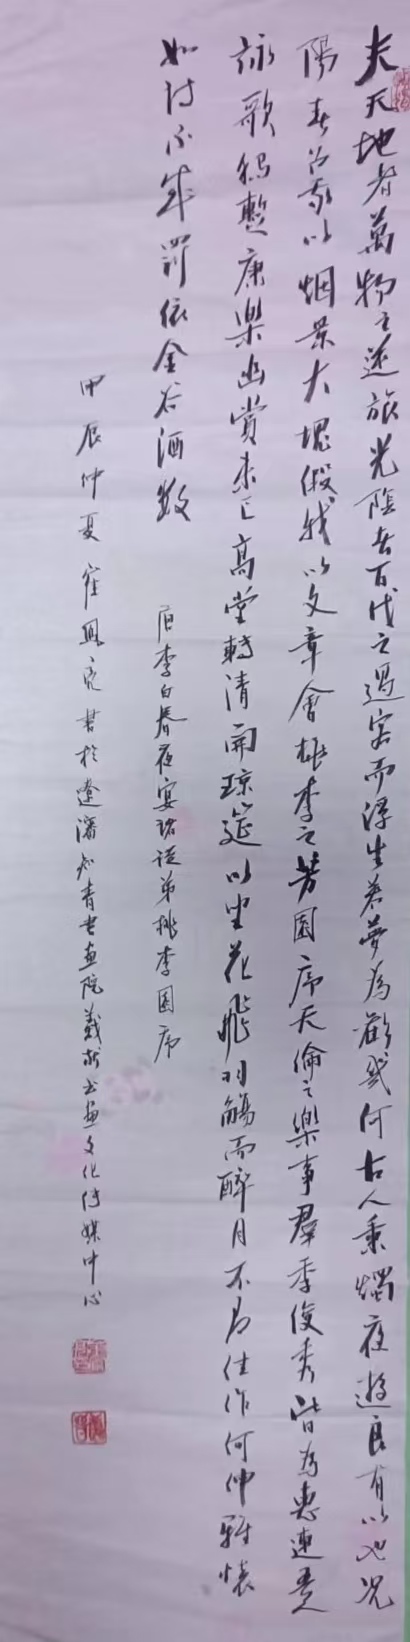 夫天地者萬物之逆旅光陰者百代之過客而浮生若夢為歡幾何古人秉燭夜遊良有以也況
陽春召我以烟景大塊假我以文章會桃李之芳園序天倫之樂事羣季俊秀皆為惠連吾人
詠歌獨慙康樂幽賞未已高堂轉清開瓊筵以坐花飛羽觴而醉月不有佳作何伸雅懷
如詩不成罰依金谷酒數
李白春夜宴諸從弟桃李園序
甲辰仲夏崔鳳亮書於遼瀋知青書畫院戴斯書畫文化傳媒中心